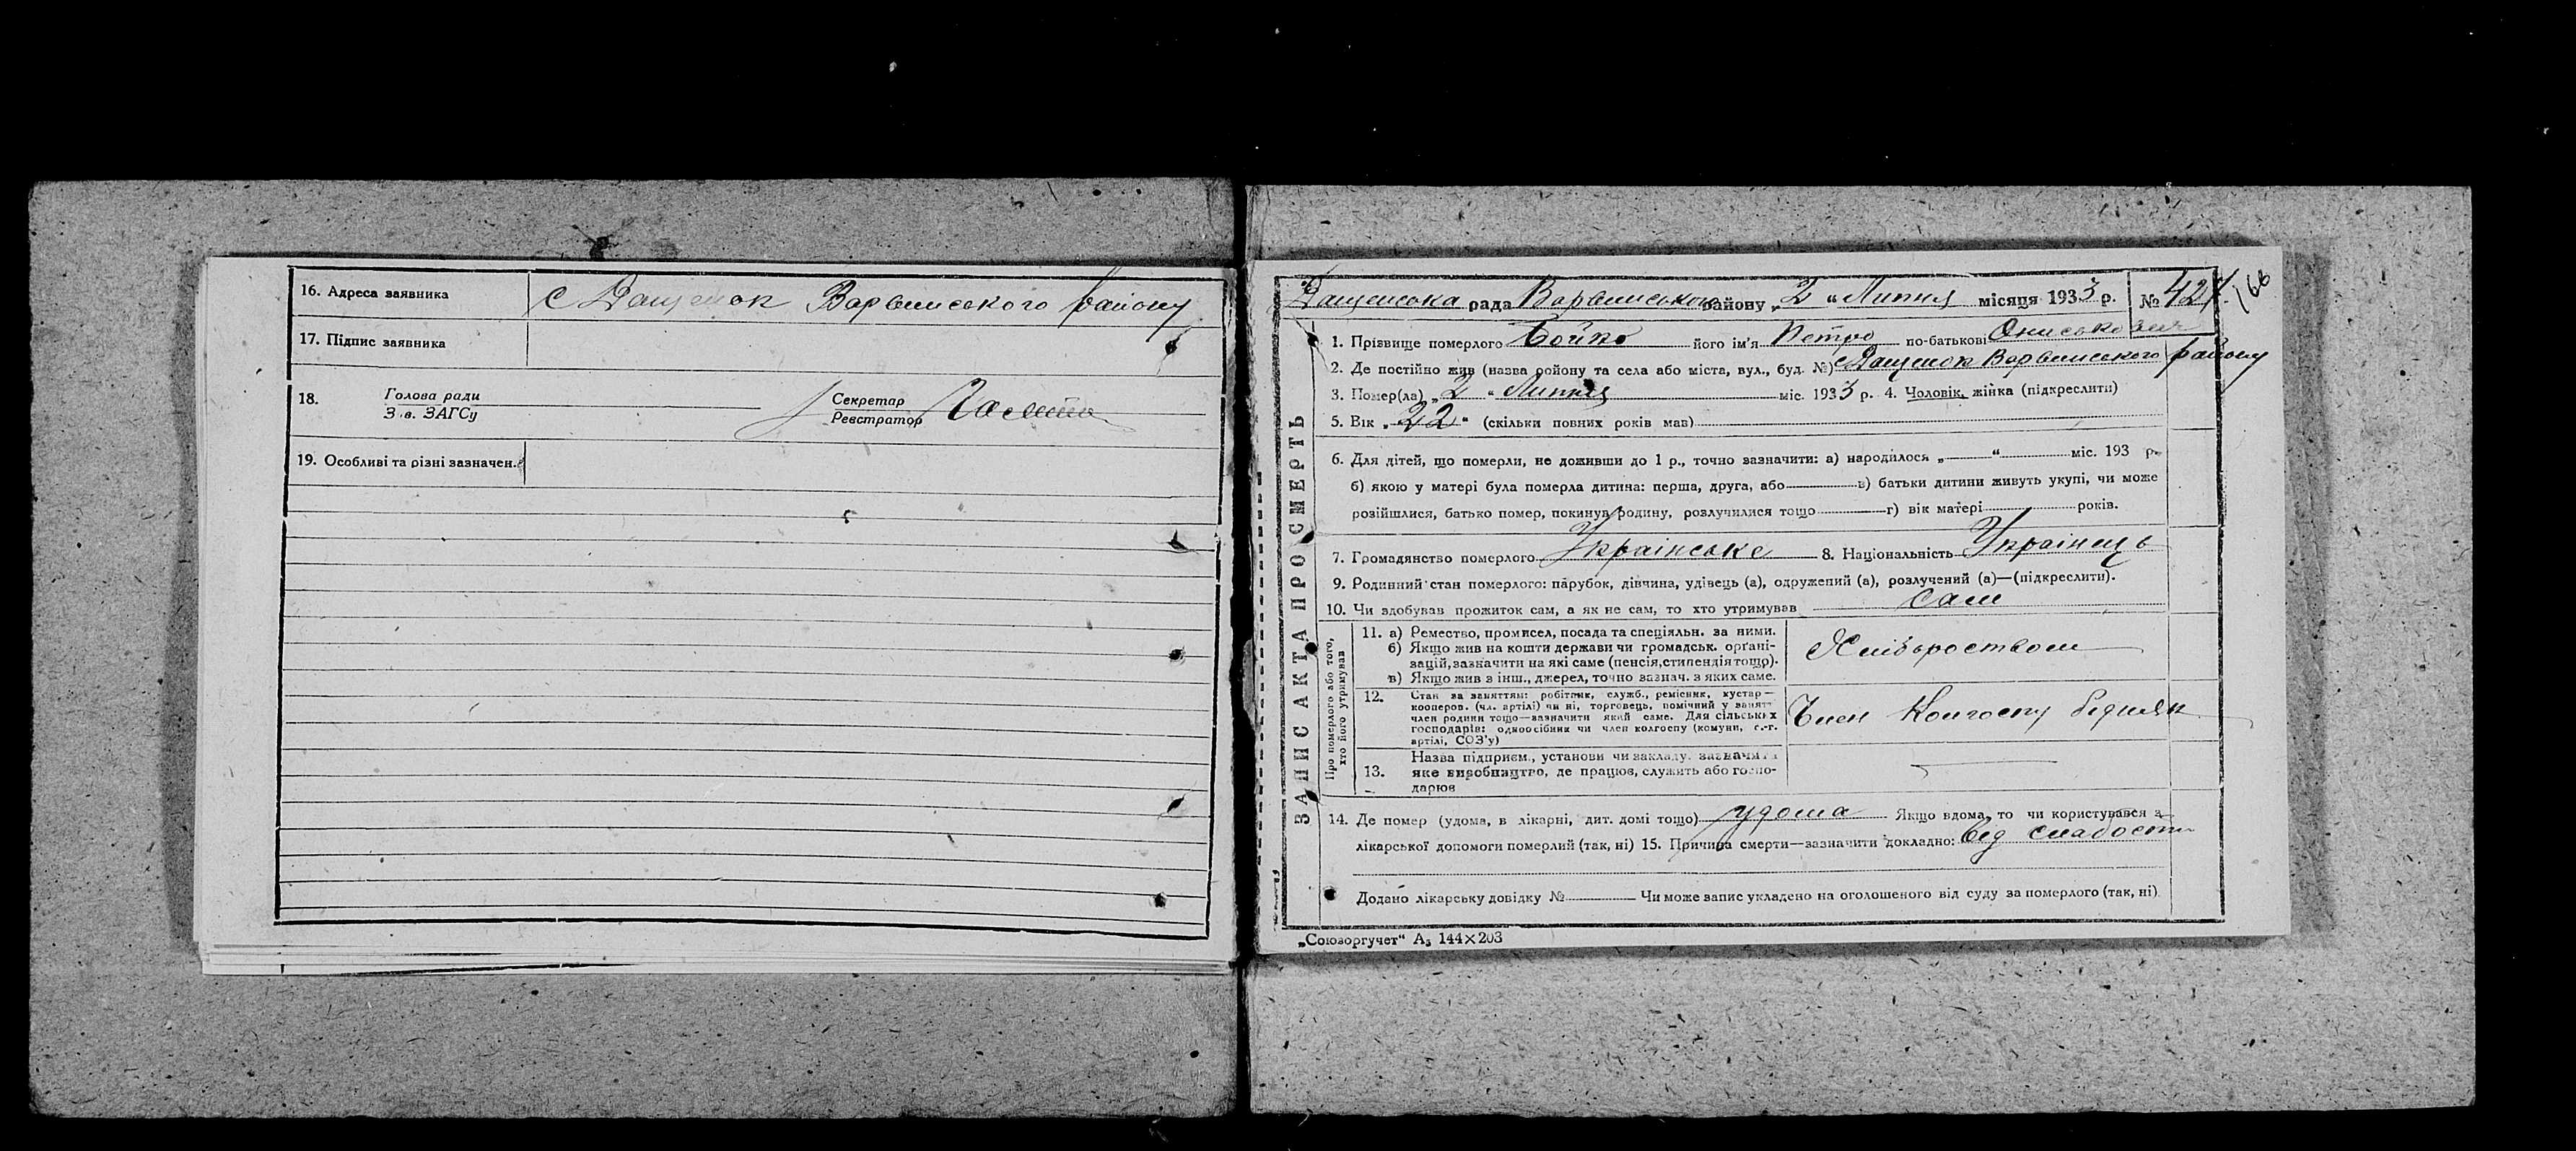 16. Адреса заявника с Дащенок Варвинського району
17. Підпис заявника
18. Голова ради Секретар
Зав. ЗАГСу Реєстратор
19. Особливі та різні зазначен.
Дащенська рада Варвинського району „2“ Липня місяця 1933 р. № 42
166
ЗАПИС АКТА ПРО СМЕРТЬ
1. Прізвище померлого Бойко його ім'я Петро по-батькові Ониськович
2. Де постійно жив (назва району та села або міста, вул., буд. №) с Дащенок Варвинського району
3. Помер(ла) „2“ Липня міс. 1933 р. 4. Чоловік, жінка (підкреслити)
5. Вік „22“ (скільки повних років мав)
6. Для дітей, що померли, не доживши до 1 р., точно зазначити: а) народилося „ “ міс. 193 р.
б) якою у матері була померла дитина: перша, друга, або в) батьки дитини живуть укупі, чи може
розійшлися, батько помер, покинув родину, розлучилися тощо г) вік матері років.
7. Громадянство померлого Українське 8. Національність Українець
9. Родинний стан померлого: парубок, дівчина, удівець (а), одружений (а), розлучений (а)—(підкреслити).
10. Чи здобував прожиток сам, а як не сам, то хто утримував сам
Про померлого або того, хто його утримував
11. а) Ремество, промисел, посада та спеціяльн. за ними.
б) Якщо жив на кошти держави чи громадськ. органі-
зацій, зазначити на які саме (пенсія, стипендія тощо).
в) Якщо жив з інш., джерел, точно зазнач. з яких саме.
Хліборобством
12. Стан за заняттям: робітник, служб., ремісник, кустар—
кооперов. (чл. артілі) чи ні, торговець, помічний у занят
член родини тощо—зазначити який саме. Для сільських
господарів: одноосібник чи член колгоспу (комуни, с.-г.
артілі, СОЗ'у)
Член Колгоспу бідняк
13. Назва підприєм., установи чи закладу, зазначити
яке виробництво, де працює, служить або госпо-
дарює
14. Де помер (удома, в лікарні, дит. домі тощо) удома Якщо вдома, то чи користувався з
лікарської допомоги померлий (так, ні) 15. Причина смерти—зазначити докладно: від слабости
Додано лікарську довідку № Чи може запис укладено на оголошеного від суду за померлого (так, ні)
„Союзоргучет“ А₅ 144×203